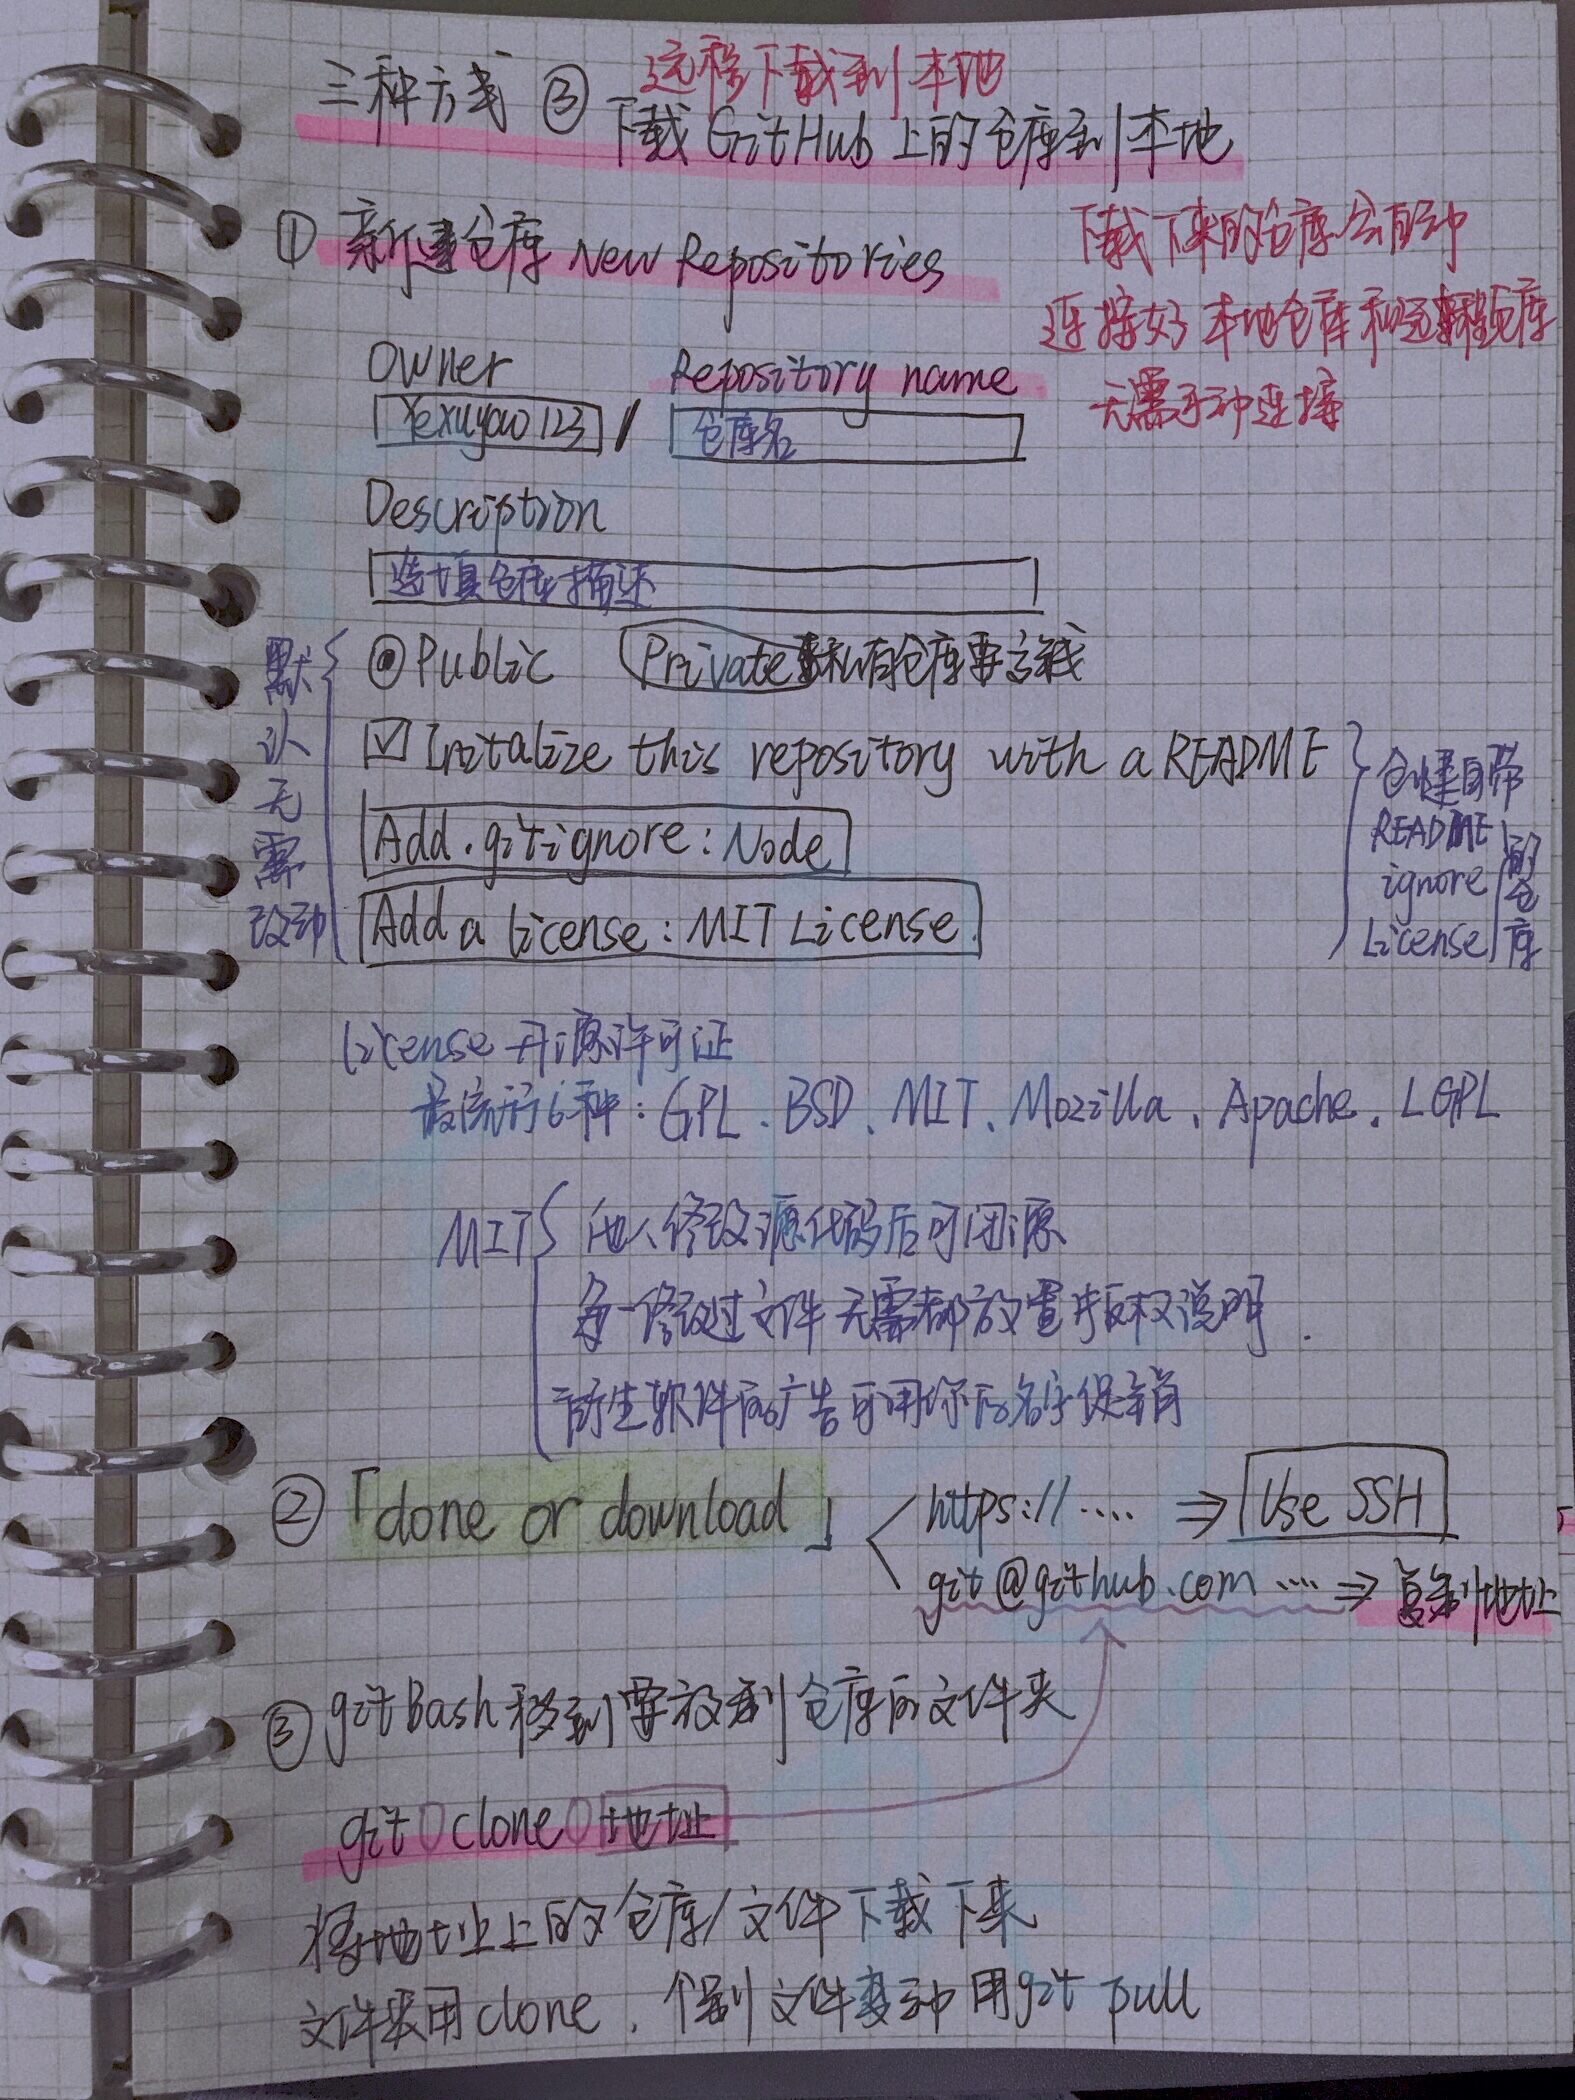 三种方式 ③
远程下载到本地
下载 GitHub 上的仓库到本地
① 新建仓库 New Repositories
下载下来的仓库会自动
连接好本地仓库和远程仓库
无需手动连接
Owner
Repository name
Yexuyao123 / 仓库名
Description
选填仓库描述
默认无需改动
Public Private 私有仓库要含钱
Initalize this repository with a README
Add .gitignore: Node
Add a license: MIT License
创建自带
README
ignore
License
的仓库
License 开源许可证
最流行6种: GPL、BSD、MIT、Mozilla、Apache、LGPL
MIT
他人修改源代码后可闭源
每一修改过文件无需都放置版权说明.
衍生软件的广告可用你的名字促销
② 「clone or download」
https://.... ⇒ Use SSH
git@github.com .... ⇒ 复制地址
③ git Bash 移到要放到仓库的文件夹
git clone 地址
将地址上的仓库/文件下载下来
文件夹用clone，个别文件变动用git pull